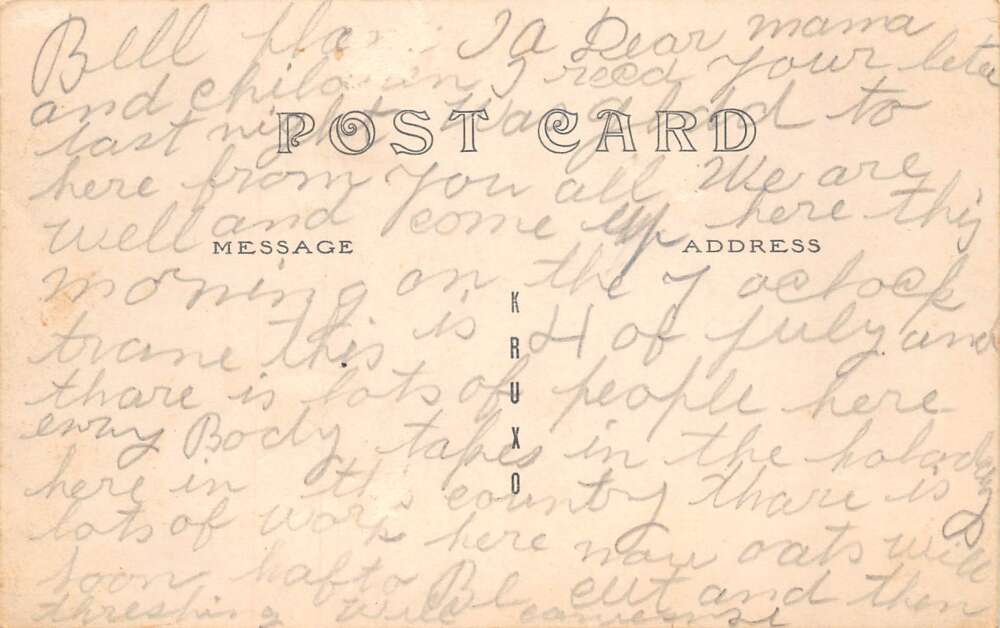 Bell plain Ia Dear mama
and children I recd your leter
last night was glad to
POST CARD
here from you all We are
well and come up here this
MESSAGE
ADDRESS
morning on the 7 oclock
KRUXO
trane this is 4 of july and
thare is lots of people here
evry Body takes in the holaday
here in this country thare is
lots of work here now oats will
soon hafto Be cut and then
threshing will